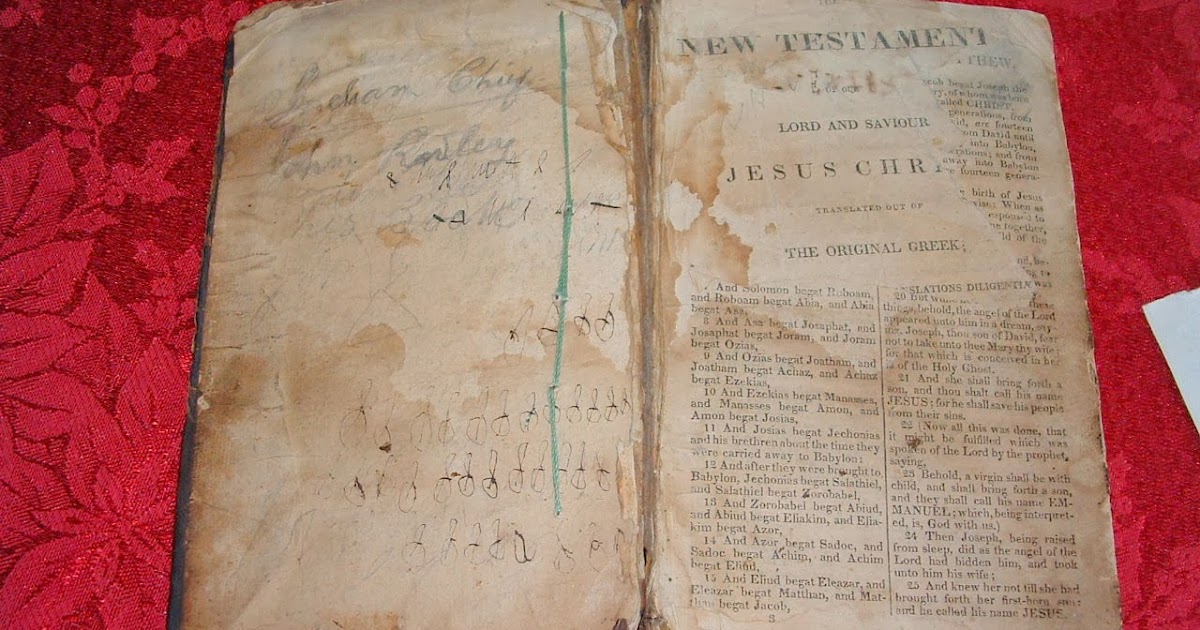 Chief
NEW TESTAMENT
THEW.
OF OUR
LORD AND SAVIOUR
JESUS CHR
TRANSLATED OUT OF
THE ORIGINAL GREEK;
begat Joseph the
of whom was born
called CHRIST.
generations, from
are fourteen
from David until
into Babylon,
and from
away into Babylon
fourteen genera-
birth of Jesus
When as
espoused to
together,
of the
And Solomon begat Roboam,
and Roboam begat Abia, and Abia
begat Asa,
8 And Asa begat Josaphat, and
Josaphat begat Joram, and Joram
begat Ozias,
9 And Ozias begat Joatham, and
Joatham begat Achaz, and Achaz
begat Ezekias,
10 And Ezekias begat Manasses,
and Manasses begat Amon, and
Amon begat Josias,
11 And Josias begat Jechonias
and his brethren about the time they
were carried away to Babylon:
12 And after they were brought to
Babylon, Jechonias begat Salathiel,
and Salathiel begat Zorobabel,
13 And Zorobabel begat Abiud,
and Abiud begat Eliakim, and Elia-
kim begat Azor,
14 And Azor begat Sadoc, and
Sadoc begat Achim, and Achim
begat Eliud,
15 And Eliud begat Eleazar, and
Eleazar begat Matthan, and Mat-
than begat Jacob,
3
SLATIONS DILIGENTLY
20 But
things, behold, the angel of the Lord
appeared unto him in a dream, say-
ing, Joseph, thou son of David, fear
not to take unto thee Mary thy wife;
for that which is conceived in her
is of the Holy Ghost.
21 And she shall bring forth a
son, and thou shalt call his name
JESUS; for he shall save his people
from their sins.
22 (Now all this was done, that
it might be fulfilled which was
spoken of the Lord by the prophet,
saying,
23 Behold, a virgin shall be with
child, and shall bring forth a son,
and they shall call his name EM-
MANUEL; which, being interpret-
ed, is, God with us.)
24 Then Joseph, being raised
from sleep, did as the angel of the
Lord had bidden him, and took
unto him his wife;
25 And knew her not till she had
brought forth her first-born son:
and he called his name JESUS.